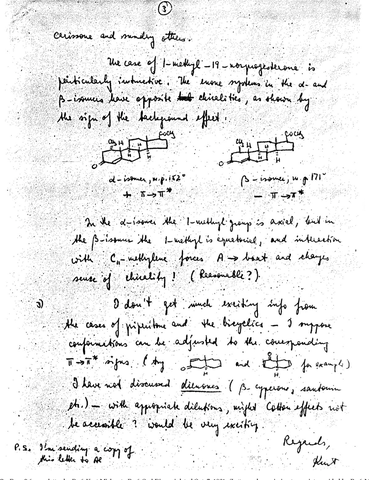 3
carissone and sundry others.
The case of 1-methyl-19-norprogesterone is
particularly instructive. The enone systems in the α- and
β-isomers have opposite chiralities, as shown by
the sign of the background effect.
CH₃ COCH₃ COCH₃
H H H H
O O
α-isomer, m.p. 152° β-isomer, m.p. 171°
+ π→π* − π→π*
In the α-isomer the 1-methyl group is axial, but in
the β-isomer the 1-methyl is equatorial, and interaction
with C₁₁-methylene forces A → boat and changes
sense of chirality! (Reasonable?)
3) I don't get much exciting info from
the cases of piperitone and the bicyclics – I suppose
conformations can be adjusted to the corresponding
π→π* signs. (try and for example)
I have not discussed dienones (β-cyperone, santonin
etc.) – with appropriate dilutions, might Cotton effects not
be accessible? Would be very exciting.
Regards,
P.S. I'm sending a copy of
this letter to Al
Kurt